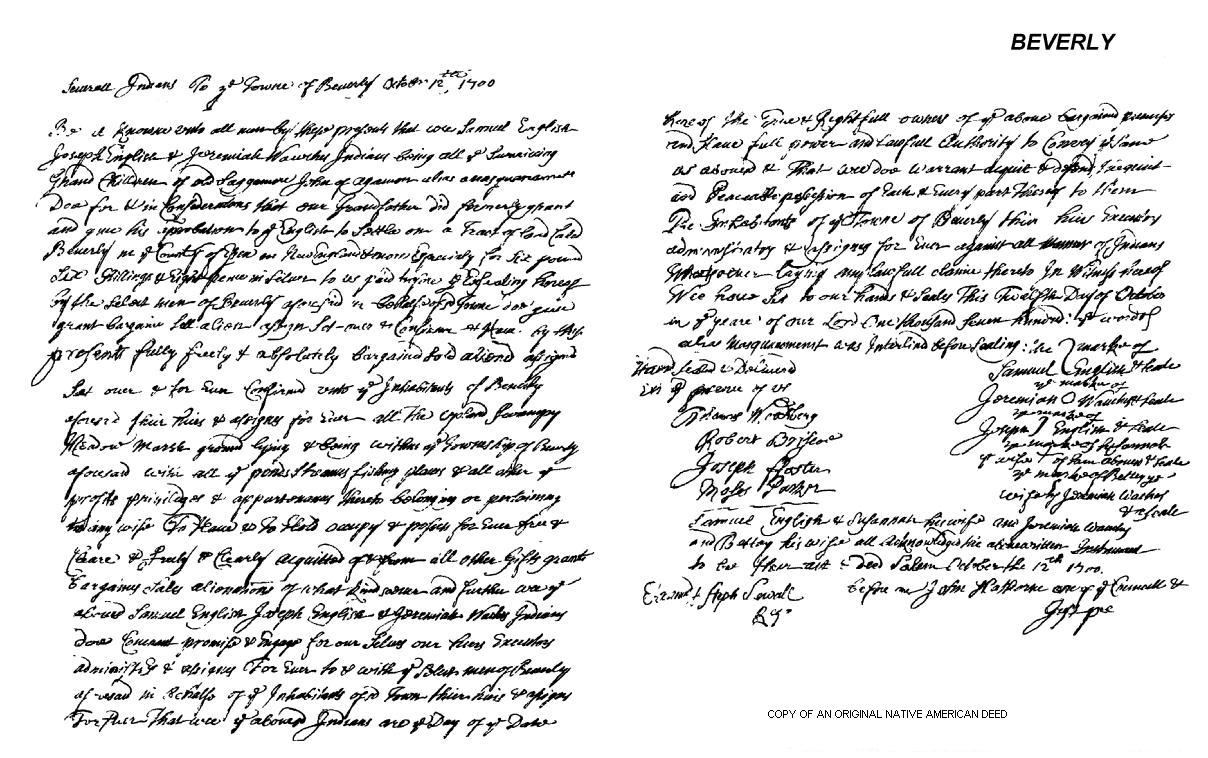 BEVERLY
Severall Indians To ye Towne of Beverly October 12th, 1700
Be it knowne unto all men by these presents that wee Samuel English
Joseph English & Jeremiah Indians being all ye Surviving
Grand Children of old Saggamore John of agawam alias
Doe for & in Consideration that our Grandfather did formerly grant
and give his approbation to ye English to Settle on a Tract of land
Beverly in ye County of Essex in New England & more Especially for Six pound
Six Shillings & Eight pence in Silver to us paid
by the Select men of Beverly aforesd in behalfe of sd Towne doe give
grant bargaine sell alien assign Set over & Confirm & Have by these
presents fully freely & absolutely bargained sold aliened assignd
Set over & for Ever Confirmd unto ye Inhabitants of Beverly
aforesd their heirs & assigns for Ever all the upland Swampy
Meadow Marsh ground lying & being within ye Township of Beverly
aforesaid with all ye ponds Streams fishing places & all other ye
profits priviledges & appurtenances thereto belonging or pertaining
in any wise To Have & To Hold occupy & posses for Ever free &
Cleare & & Clearly acquitted of & from all other Gifts grants
bargains Sales alienations of what kind soever and further wee ye
aboved Samuel English Joseph English & Jeremiah Indians
doe Covenant promise & Engage for our Selves our heirs Executors
administrs & assigns For Ever to & with ye Select men of Beverly
aforesaid in behalfe of ye Inhabitants of sd Town their heirs & assigns
Further That wee ye aboved Indians are ye Day of ye Date
here of the True & Rightfull owners of ye above bargaind premises
and Have full power and Lawfull Authority to Convey ye Same
as aboved & That wee doe warrant &
and possession of Each & Every part thereof to them
The Inhabitants of ye Towne of Beverly their heirs Executors
administrators & assigns for Ever against all of Indians
Whatsoever laying any lawfull claime thereto In Witness hereof
Wee have Set to our hands & Seales This Twelfth Day of October
in ye yeare of our Lord One thousand Seven hundred: ye words of
alias was Interlind before Sealing: the marke of
Signed Sealed & Delivered
In ye presence of us
Samuel English & Seale
ye marke of
Jeremiah & Seale
ye marke of
Robert Briscoe
Joseph English & Seale
ye marke of Susannah
Joseph Foster
ye wife of Sam aboved & Seale
ye marke of Betty ye
Moses Parker
wife of Jeremiah
& Seale
Samuel English & Susannah his wife and Jeremiah
and Betty his wife all Acknowledged the above written Instrument
to be their act & Deed Salem October the 12th 1700.
Examd Steph Sewall before me John Hathorne one of ye Councill &
Just pce
COPY OF AN ORIGINAL NATIVE AMERICAN DEED